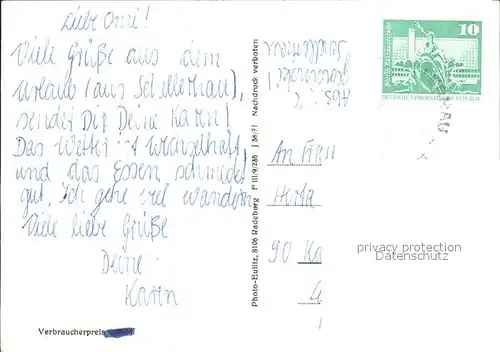 Liebe Omi!
Viele Grüße aus dem
Urlaub (aus Schellerhau),
sendet Dir Deine Karen!
Das Wetter ist wechselhaft,
und das Essen schmeckt
gut. Ich gehe viel wandern
Viele liebe Grüße
Deine
Karen
Verbraucherpreis
Photo-Eulitz, 8106 Radeburg P III/9/286 J 38/71 Nachdruck verboten
Abs.:
Schellerhau
10
Berlin, Rathausstraße
DEUTSCHE DEMOKRATISCHE REPUBLIK
An Frau
Herta
90 Ka
privacy protection
Datenschutz